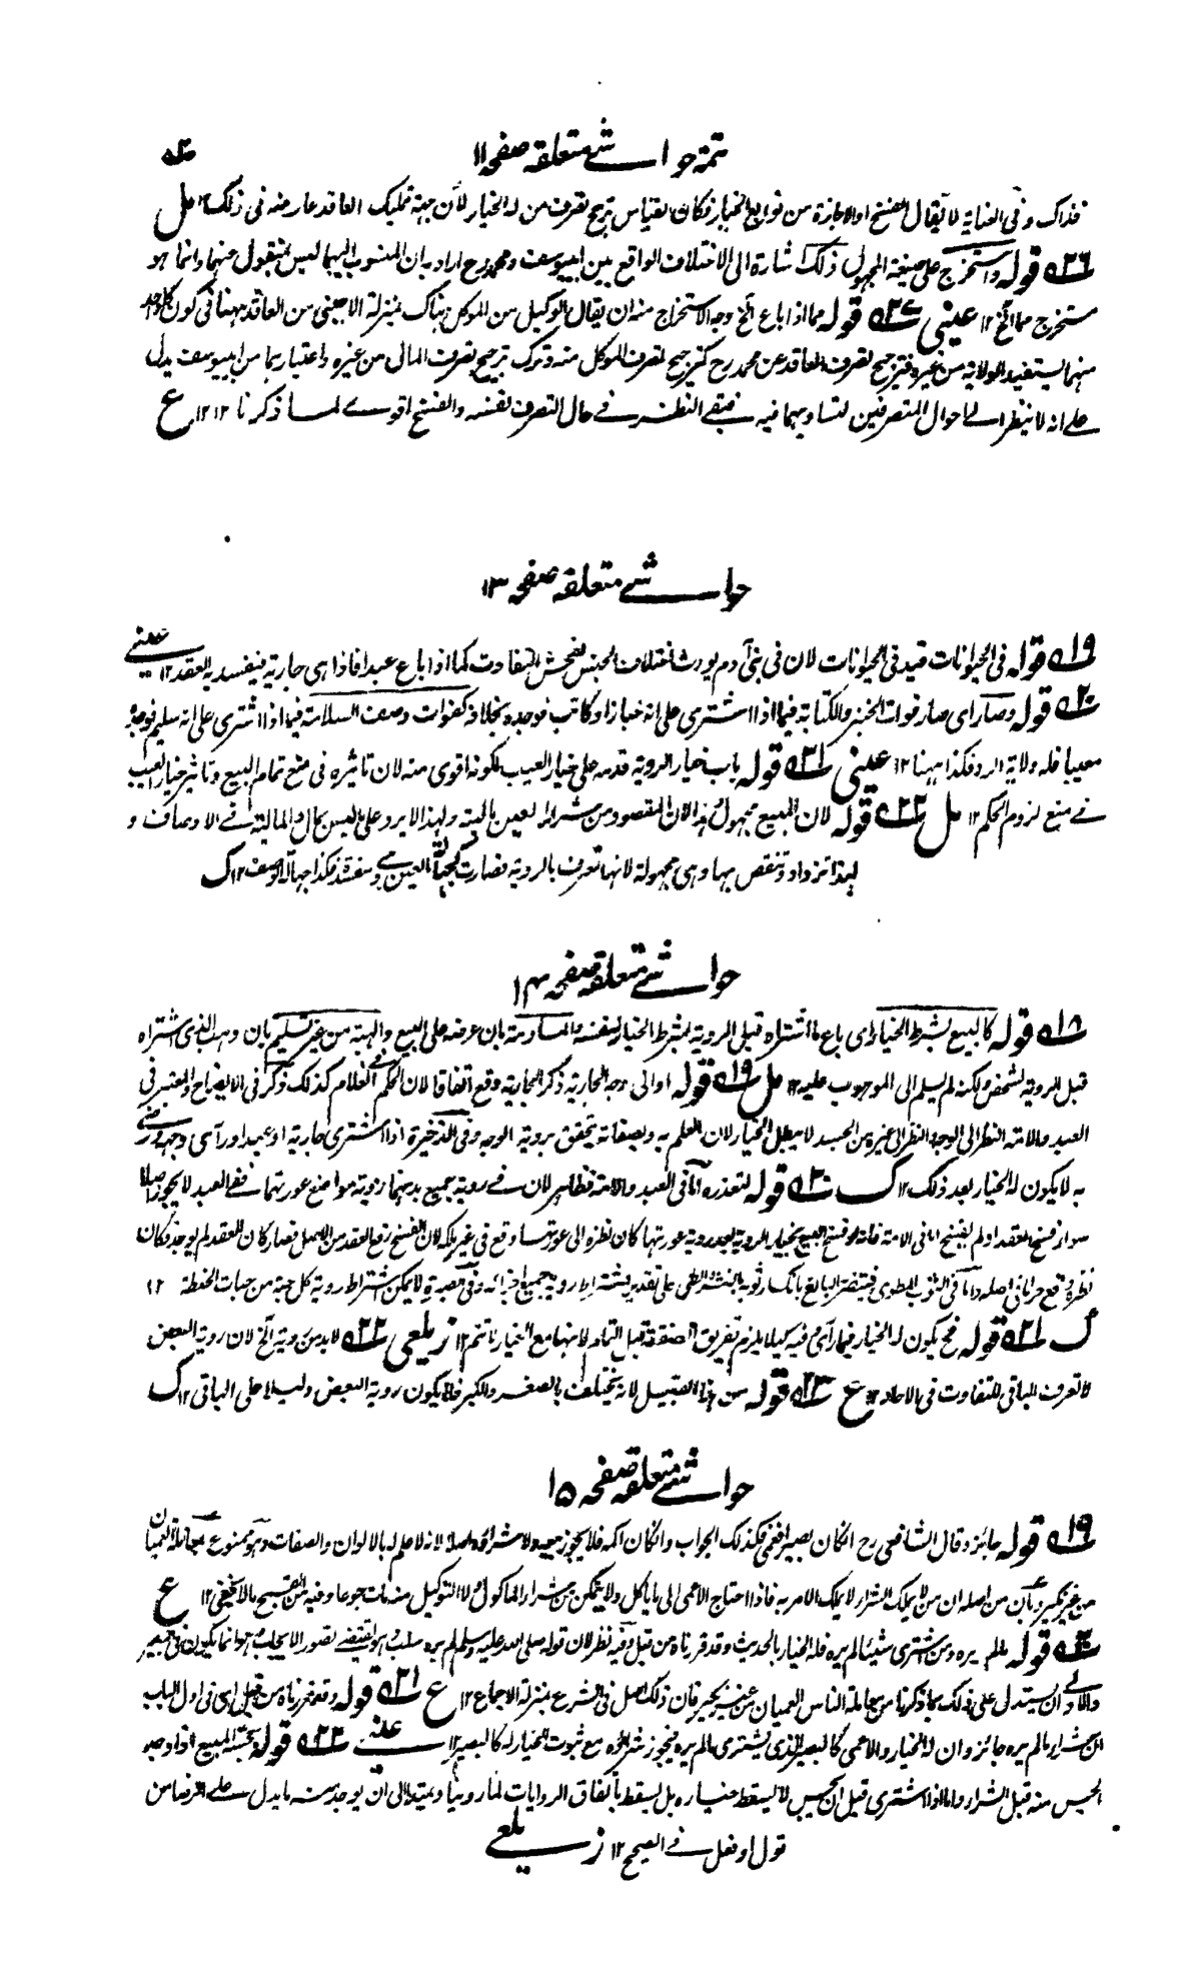 تتمة حواشی متعلقہ صفحہ ۱۱
فذاک وفی العنایة لا یقال الفسخ او الاجازة من توابع الخیار فکان القیاس ترجیح تصرف من له الخیار لأن جهة تملیک العاقد عارضه فی ذلک ۱۲ مل
۳۶ قوله واستخرج علی صیغة المجهول ذلک اشارة الی الاختلاف الواقع بین ابی یوسف ومحمد رح اراد به ان المنسوب الیهما لیس بمنقول عنهما وانما هو
مستخرج مما الخ ۱۲ عینی ۳۷ قوله مما اذا باع الخ وجه الاستخراج منه ان یقال الوکیل من الموکل هناک بمنزلة الاجنبی من العاقد ههنا فی کون کل واحد
منهما یستفید الولایة من غیره فترجیح تصرف العاقد عن محمد رح کترجیح تصرف الموکل منه وترک ترجیح تصرف المال من غیره واعتبارهما من ابی یوسف یدل
علی انه لا ینظر الی احوال المتصرفین لتساویهما فیه فبقی النظر فی حال التصرف نفسه والفسخ اقوی لما ذکرنا ۱۲ ۱۲ ع
حواشی متعلقہ صفحہ ۱۳
۱۹ قوله فی الحیوانات قید فی الحیوانات لان فی بنی آدم یورث اختلاف الجنس لفحش التفاوت کما اذا باع عبدا فاذا هی جاریة فینفسد به العقد ۱۲ عینی
۲۰ قوله وصار ای صار فوات الخبز والکتابة فیما اذا اشتری علی انه خباز او کاتب فوجده بخلافه کفوات وصف السلامة فیما اذا اشتری علی انه سلیم فوجده
معیبا فله ولایة الرد فکذا ههنا ۱۲ عینی ۲۱ قوله باب خیار الرویة قدمه علی خیار العیب لکونه اقوی منه لان تاثیره فی منع تمام البیع وتاثیر خیار العیب
فی منع لزوم الحکم ۱۲ مل ۲۲ قوله لان المبیع مجهول هذا لان المقصود من شراء العین مالیته ولهذا لا یرد علی ما لیس بمال والمالیة فی الاوصاف و
لهذا تزداد وتنقص بها وهی مجهولة لانها تعرف بالرویة فصارت کجهالة العین وهی مفسدة فکذا جهالة الوصف ۱۲ ک
حواشی متعلقہ صفحہ ۱۴
۱۸ قوله کالبیع بشرط الخیار ای باع ما اشتراه قبل الرویة بشرط الخیار لنفسه والمساومة بان عرضه علی البیع والهبة من غیر تسلیم بان وهب الذی اشتراه
قبل الرویة لشخص ولکنه لم یسلم الی الموهوب علیه ۱۲ مل ۱۹ قوله او الی وجه الجاریة ذکر الجاریة وقع اتفاقا لان الحکم فی الغلام کذلک ذکر فی الایضاح والمعتبر فی
العبد والامة النظر الی الوجه النظر الی غیره من الجسد لا یبطل الخیار لان العلم به وبصفاته یتحقق برویة الوجه وفی الذخیرة اذا اشتری جاریة او عبدا ورآی وجهه ورضی
به لا یکون له الخیار بعد ذلک ۱۲ ک ۲۰ قوله لتعذره اما فی العبد والامة فظاهر لان فی رویة جمیع بدنهما رویة مواضع عورتهما ففی العبد لا یجوز اصلا
سواء فسخ العقد او لم یفسخ اما فی الامة فانه لو فسخ البیع بخیار الرویة بعد رویة عورتها کان نظره الی عورتها وقع فی غیر ملکه لان الفسخ رفع العقد من الاصل فصار کان العقد لم یوجد فکان
نظره وقع حراما فی اصله واما فی الثوب المطوی فیتضرر البائع بانکسار ثوبه بالنشر والطی علی تقدیر اشتراط رویة جمیع اجزائه وفی الصبرة لا یمکن اشتراط رویة کل حبة من حبات الحنطة ۱۲
ک ۲۱ قوله فح یکون له الخیار فیما رآی وفیه کیلا یلزم تفریق الصفقة قبل التمام لانها مع الخیار لا تتم ۱۲ زیلعی ۲۲ لا بد من رویة الخ لان رویة البعض
لا تعرف الباقی للتفاوت فی الآحاد ۱۲ ع ۲۳ قوله من هذا القبیل لانه یختلف بالصغر والکبر فلا یکون رویة البعض دلیلا علی الباقی ۱۲ ک
حواشی متعلقہ صفحہ ۱۵
۱۹ قوله جائز وقال الشافعی رح ان کان بصیرا فعمی فکذلک الجواب وان کان اکمه فلا یجوز بیعه ولا شراؤه اصلا لانه لا علم له بالالوان والصفات وهو ممنوع بمعاملة العمیان
من غیر نکیر وبأن من اصله ان من لا یملک الشراء لا یملک الامر به فاذا احتاج الاعمی الی ما یاکل ولا یتمکن من شراء الماکول ولا التوکیل منه مات جوعا وفیه من القبح ما لا یخفی ۱۲ ع
۲۰ قوله مالم یره ومن اشتری شیئا لم یره فله الخیار بالحدیث وقد قررناه من قبل وفیه نظر لان قوله صلی الله علیه وسلم لم یره سلب وهو یقتضی تصور الایجاب وهو انما یکون فی بصیر
والاولی ان یستدل علی ذلک بما ذکرنا من معاملة الناس العمیان من غیر نکیر فان ذلک اصل فی الشرع بمنزلة الاجماع ۱۲ ع ۲۱ قوله وقد قررناه من قبل ای فی اول الباب
ان شراء مالم یره جائز وان له الخیار والاعمی کالبصیر الذی یشتری مالم یره فیجوز شراؤه مع ثبوت الخیار له کالبصیر ۱۲ عینی ۲۲ قوله بجسه المبیع اذا وجد
الجس منه قبل الشراء واما اذا اشتری قبل ان یجس لا یسقط خیاره بل یسقط باتفاق الروایات لما روینا ویمتد الی ان یوجد منه ما یدل علی الرضا من
قول او فعل فی الصحیح ۱۲ زیلعی